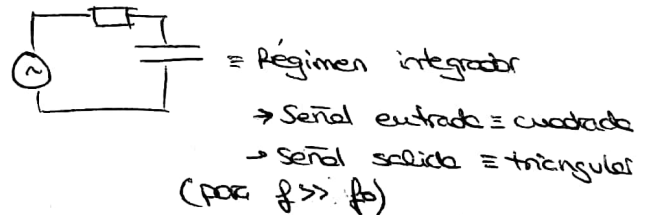 ~
≡ Régimen integrador
→ Señal entrada ≡ cuadrada
→ Señal salida ≡ triangular
(para f >> fo)